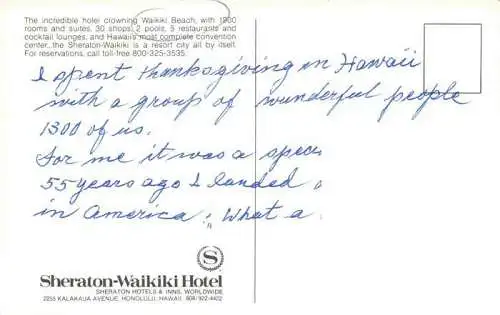 The incredible hotel crowning Waikiki Beach, with 1900
rooms and suites, 30 shops, 2 pools, 5 restaurants and
cocktail lounges, and Hawaii's most complete convention
center...the Sheraton-Waikiki is a resort city all by itself.
For reservations, call toll-free 800-325-3535.
I spent thanksgiving in Hawaii
with a group of wunderful people
1300 of us.
For me it was a spec
55 years ago I landed
in America. What a
S
Sheraton-Waikiki Hotel
SHERATON HOTELS & INNS, WORLDWIDE
2255 KALAKAUA AVENUE, HONOLULU, HAWAII 808/922-4422